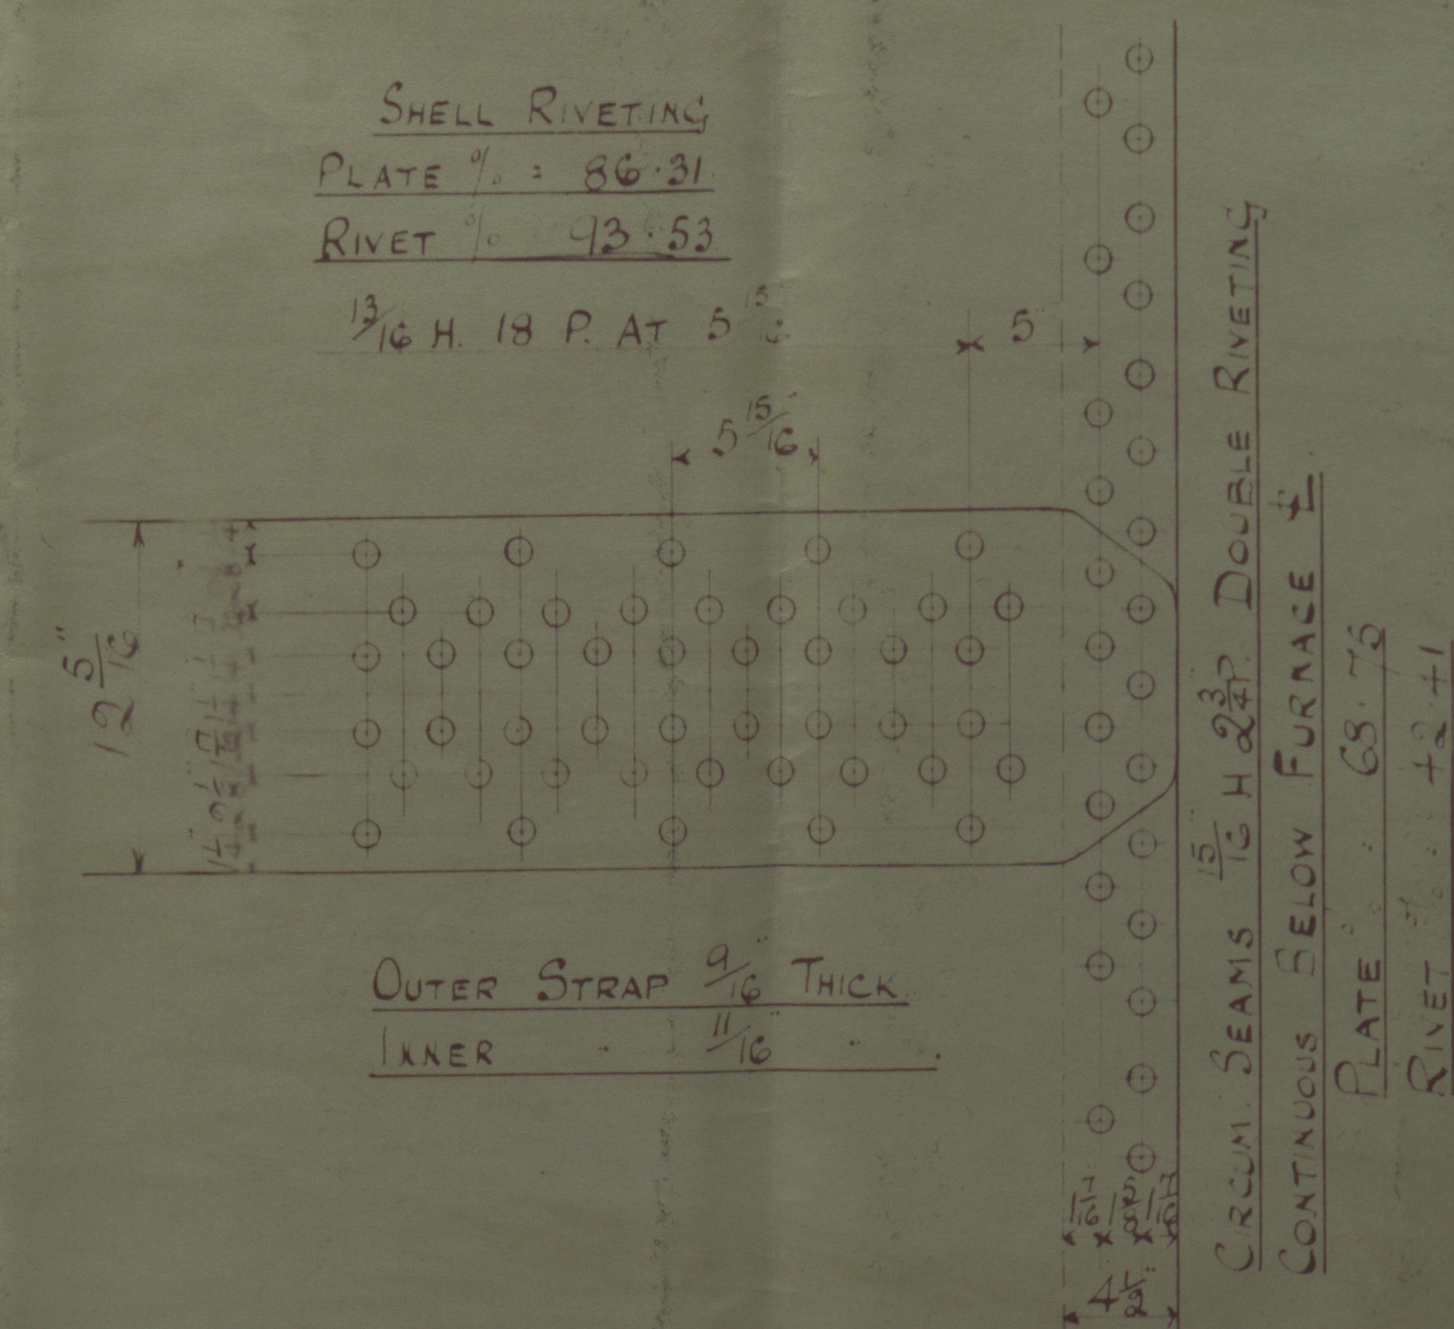 SHELL RIVETING
PLATE % = 86·31
RIVET % 93·53
13/16 H. 18 P. AT 5 15
5
5 15/16
12 5/16"
OUTER STRAP 9/16" THICK.
INNER " 11/16" " .
CIRCUM. SEAMS 15/16" H 2 3/4 P. DOUBLE RIVETING
CONTINUOUS BELOW FURNACE ℄.
PLATE 68·75
RIVET % 42·41
4 1/2"